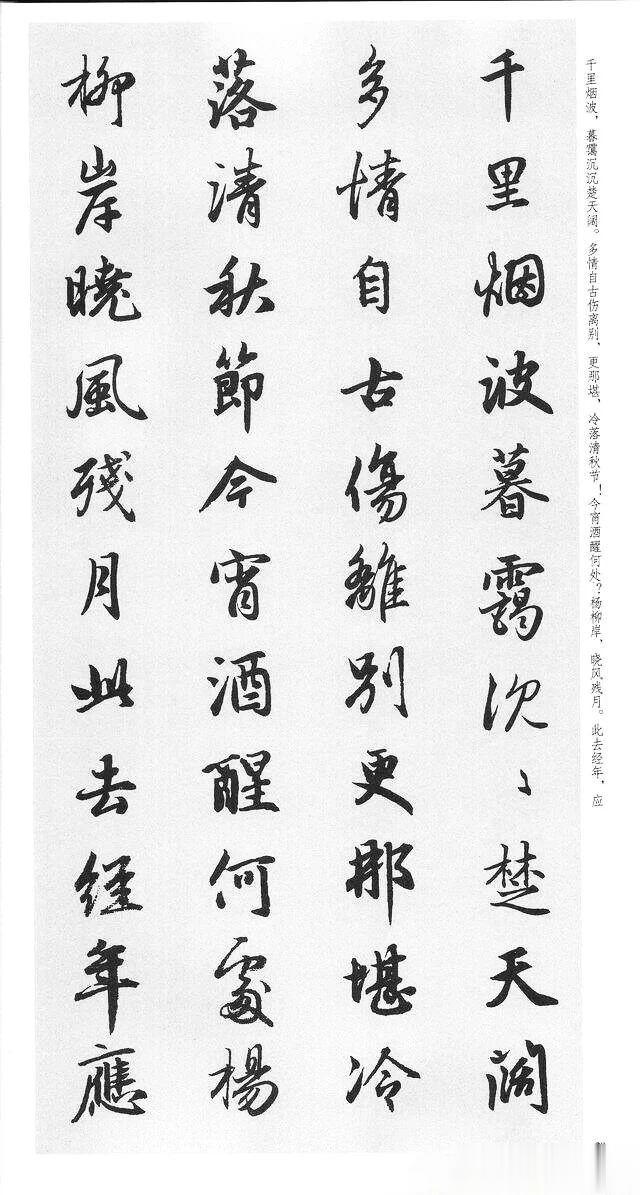 千里烟波暮靄沉〻楚天阔
多情自古傷離別更那堪冷
落清秋節今宵酒醒何處楊
柳岸曉風殘月此去經年應
千里烟波，暮霭沉沉楚天阔。多情自古伤离别，更那堪，冷落清秋节！今宵酒醒何处？杨柳岸，晓风残月。此去经年，应